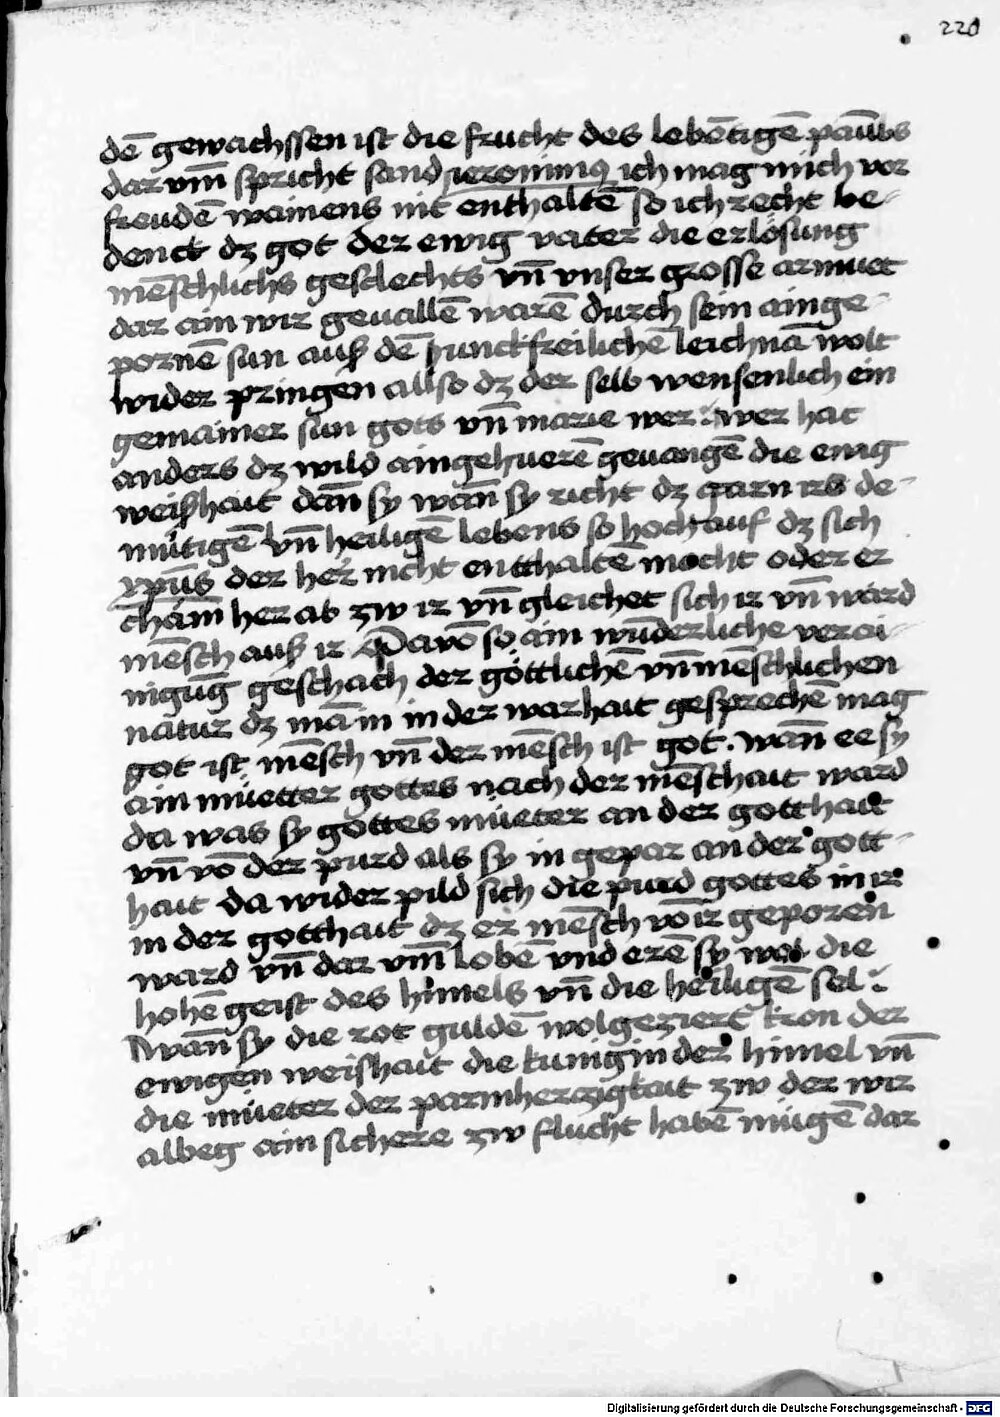 220
dē gewachssen ist die frucht des lebētigē paūms
dar vm̄ spricht sand jeronimꝯ ich mag mich vor
freudē wainens nit enthaltē so ich recht be-
denck dz got der ewig vater die erlösung
mēschlichs gesclechts vn̄ vnser grosse armuet
dar ain wir geuallē warē durch sein ainge-
pornē sun auß dē junckfreilichē leichnā wolt
wider pringen allso dz der selb wensenlich ein
gemainer sun gots vn̄ marie wer : wer hat
anders dz wild aingehuerē geuangē die ewig
weißhait dan̄ sy wan̄ sy richt dz garn irs de-
mütigē vn̄ heiligē lebens so hoch auf dz sich
xpūs der her nicht entthaltē mocht oder er
cham̄ her ab zw ir vn̄ gleichet sich ir vn̄ ward
mēsch auß ir Davō so ain wūderliche verai-
nigūg geschach der göttlichē vn̄ mēschlichen
natur dz mā in in der warhait gesprechē mag
got ist mēsch vn̄ der mēsch ist got . wan̄ ee sy
ain müetter gottes nach der mēschait ward
da was sy gottes müeter an der gotthait
vn̄ vō der purd als sy in gepar an der gott-
hait da wider pild sich die purd gottes in ir
in der gotthait dz er mēsch vō ir geporen
ward vn̄ dar vm̄ lobē vnd erē sy wol die
hohē geist des himels vn̄ die heiligē sel :
Wan̄ sy die rot guldē wolgeziert kron der
ewigen weishait die kunigin der himel vn̄
die müeter der parmherzigkait zw der wir
albeg ain sichere zw flucht habē mügē dar
Digitalisierung gefördert durch die Deutsche Forschungsgemeinschaft - DFG